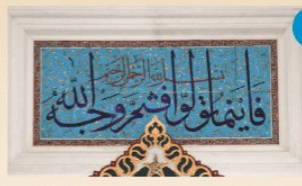 بسم الله الرحمن الرحيم
فاينما تولوا فثم وجه الله